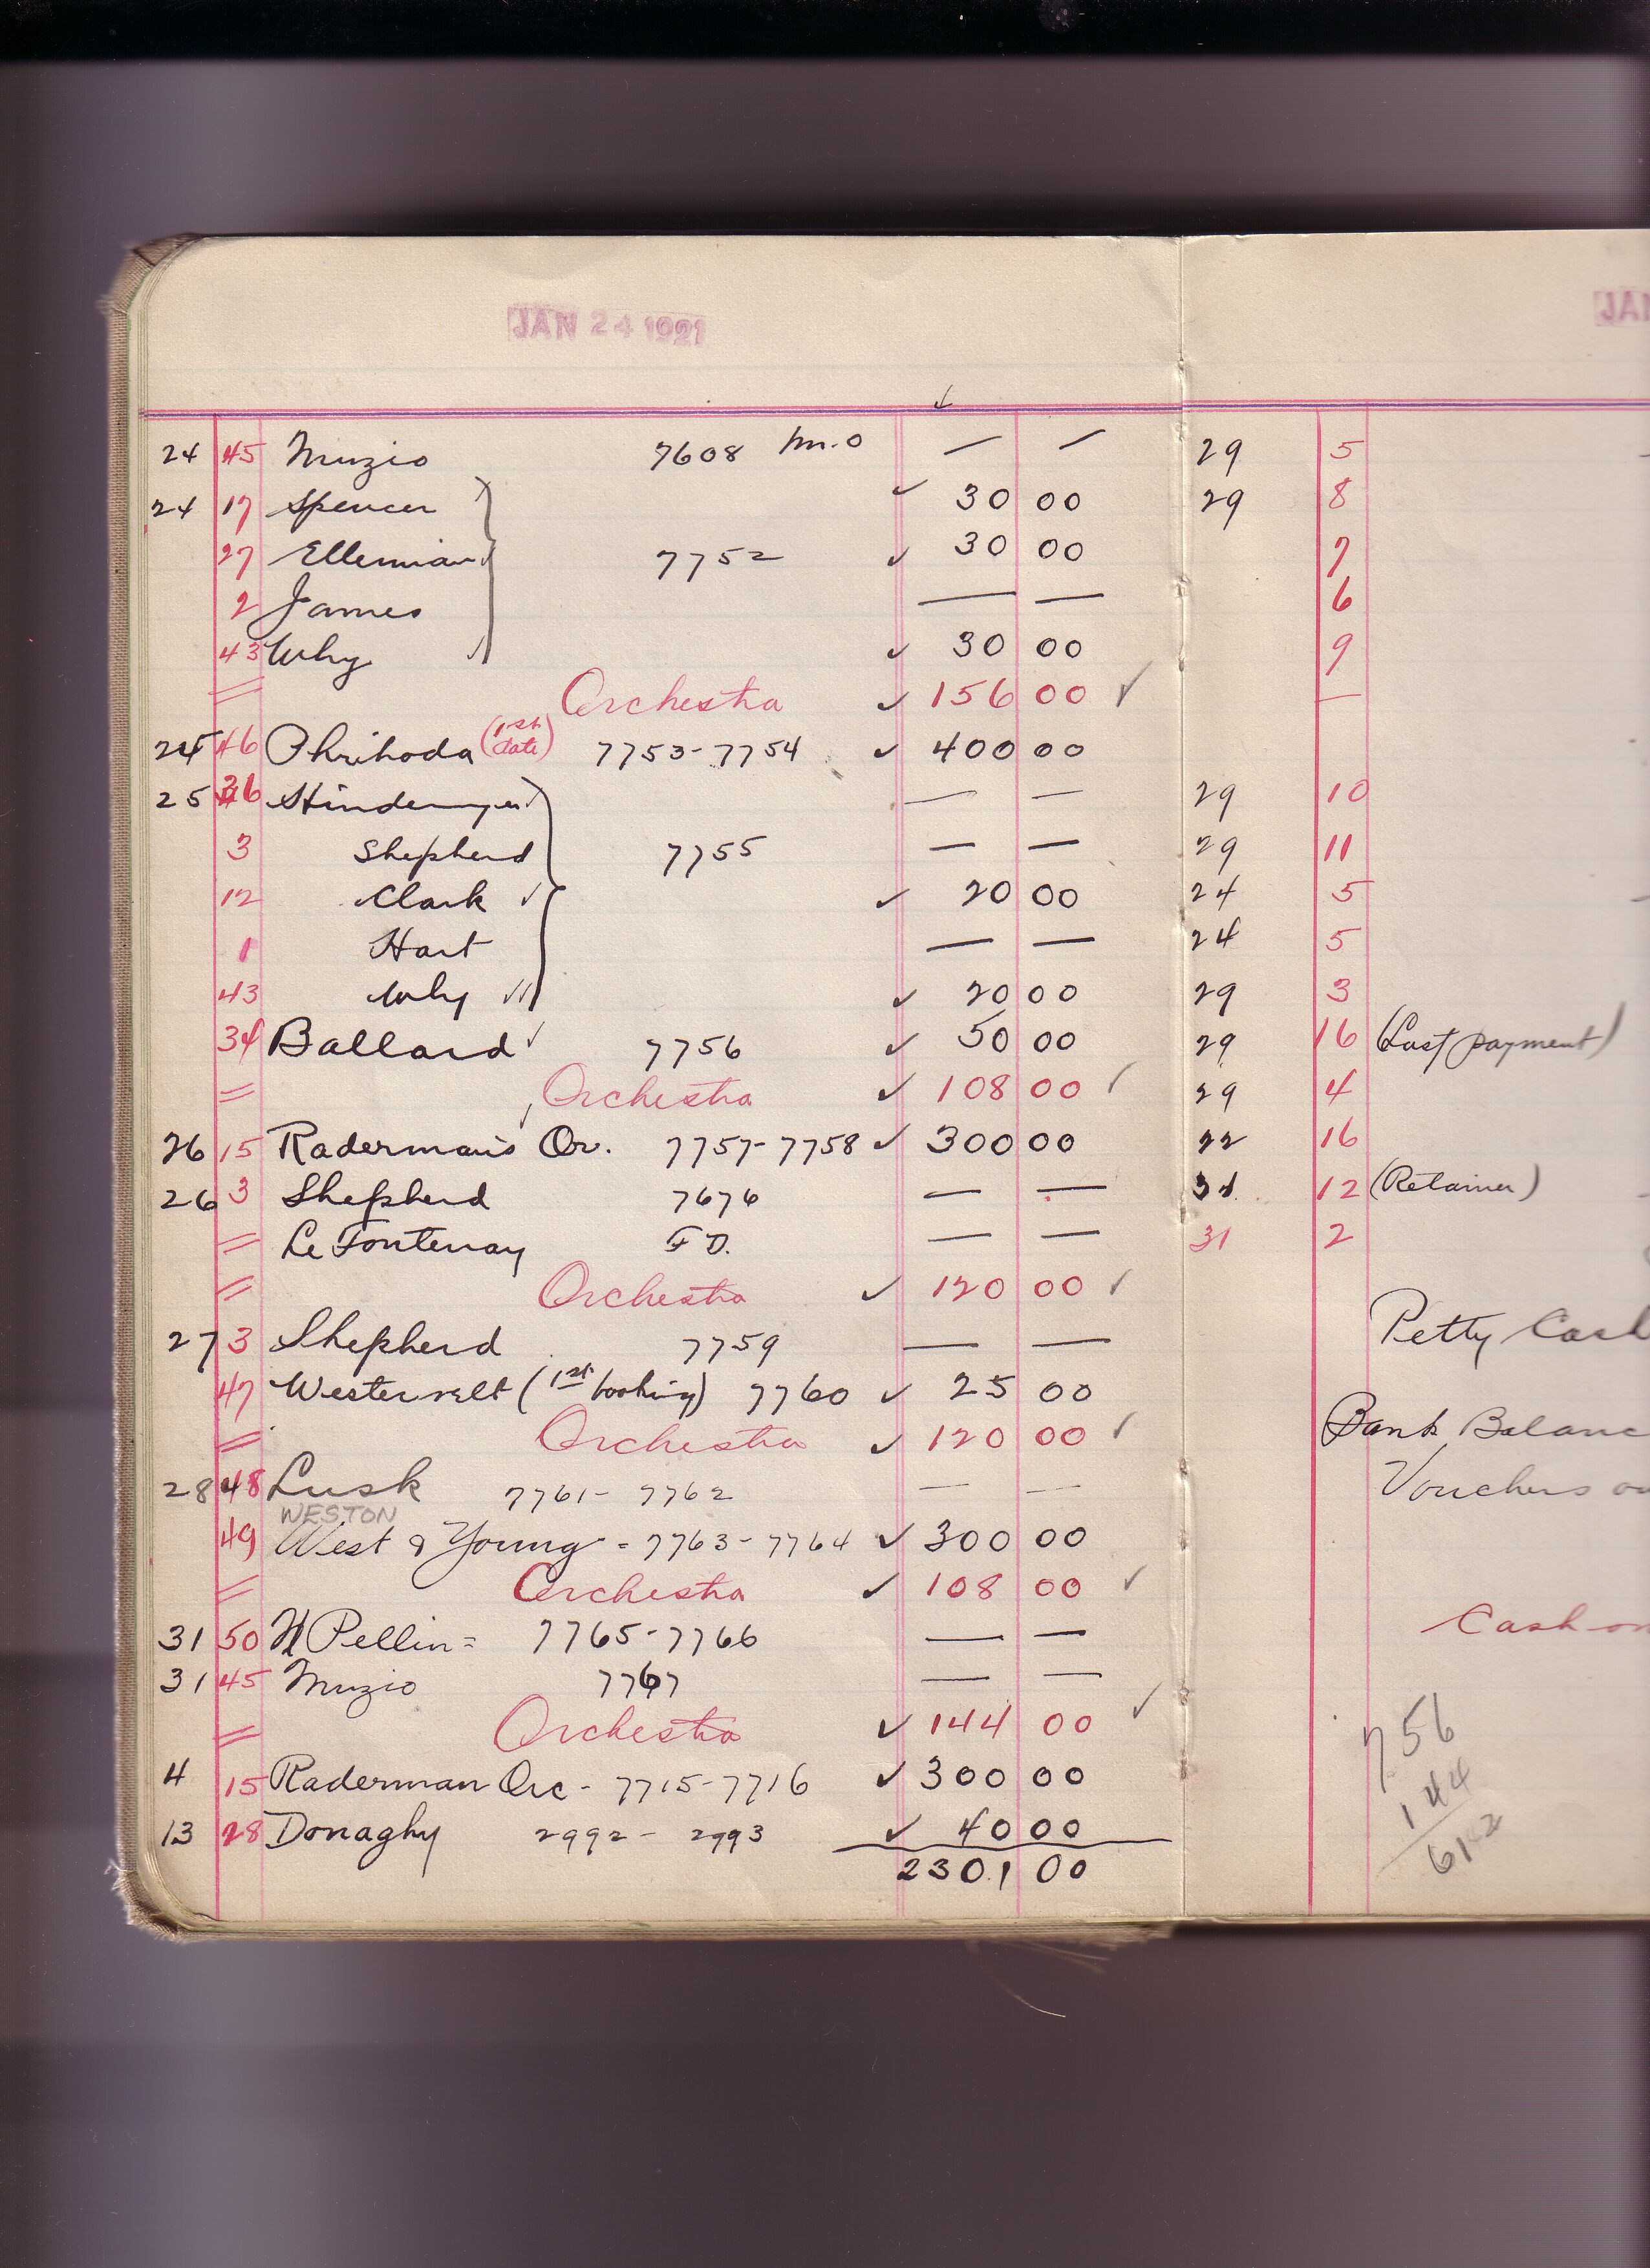 JAN 24 1921
24 45 Muzio 7608 m.o — —
24 17 Spencer ✓ 30 00
27 Ellerman 7752 ✓ 30 00
2 James — —
43 Why ✓ ✓ 30 00
= Orchestra ✓ 156 00 ✓
25 46 Phrihoda (1st date) 7753-7754 ✓ 400 00
25 36 Hindermyer — —
3 Shepherd 7755 — —
12 Clark ✓ ✓ 20 00
1 Hart — —
43 Why ✓✓ ✓ 20 00
34 Ballard ✓ 7756 ✓ 50 00
= Orchestra ✓ 108 00 ✓
26 15 Raderman's Or. 7757-7758 ✓ 300 00
26 3 Shepherd 7676 — —
= Le Fontenay F D. — —
= Orchestra ✓ 120 00 ✓
27 3 Shepherd 7759 — —
47 Westervelt (1st booking) 7760 ✓ 25 00
= Orchestra ✓ 120 00 ✓
28 48 Lusk 7761- 7762 — —
WESTON
49 West & Young - 7763-7764 ✓ 300 00
= Orchestra ✓ 108 00 ✓
31 50 Pellin = 7765-7766 — —
31 45 Muzio 7767 — —
= Orchestra ✓ 144 00 ✓
4 15 Raderman Orc - 7715-7716 ✓ 300 00
13 28 Donaghy 2992 - 2993 ✓ 40 00
2301 00
JA
29 5
29 8
7
6
9
—
29 10
29 11
24 5
24 5
29 3
29 16 (Last payment)
29 4
22 16
31 12 (Retainer)
31 2
Petty Cash
Bank Balanc
Vouchers ou
Cash on
756
144
612